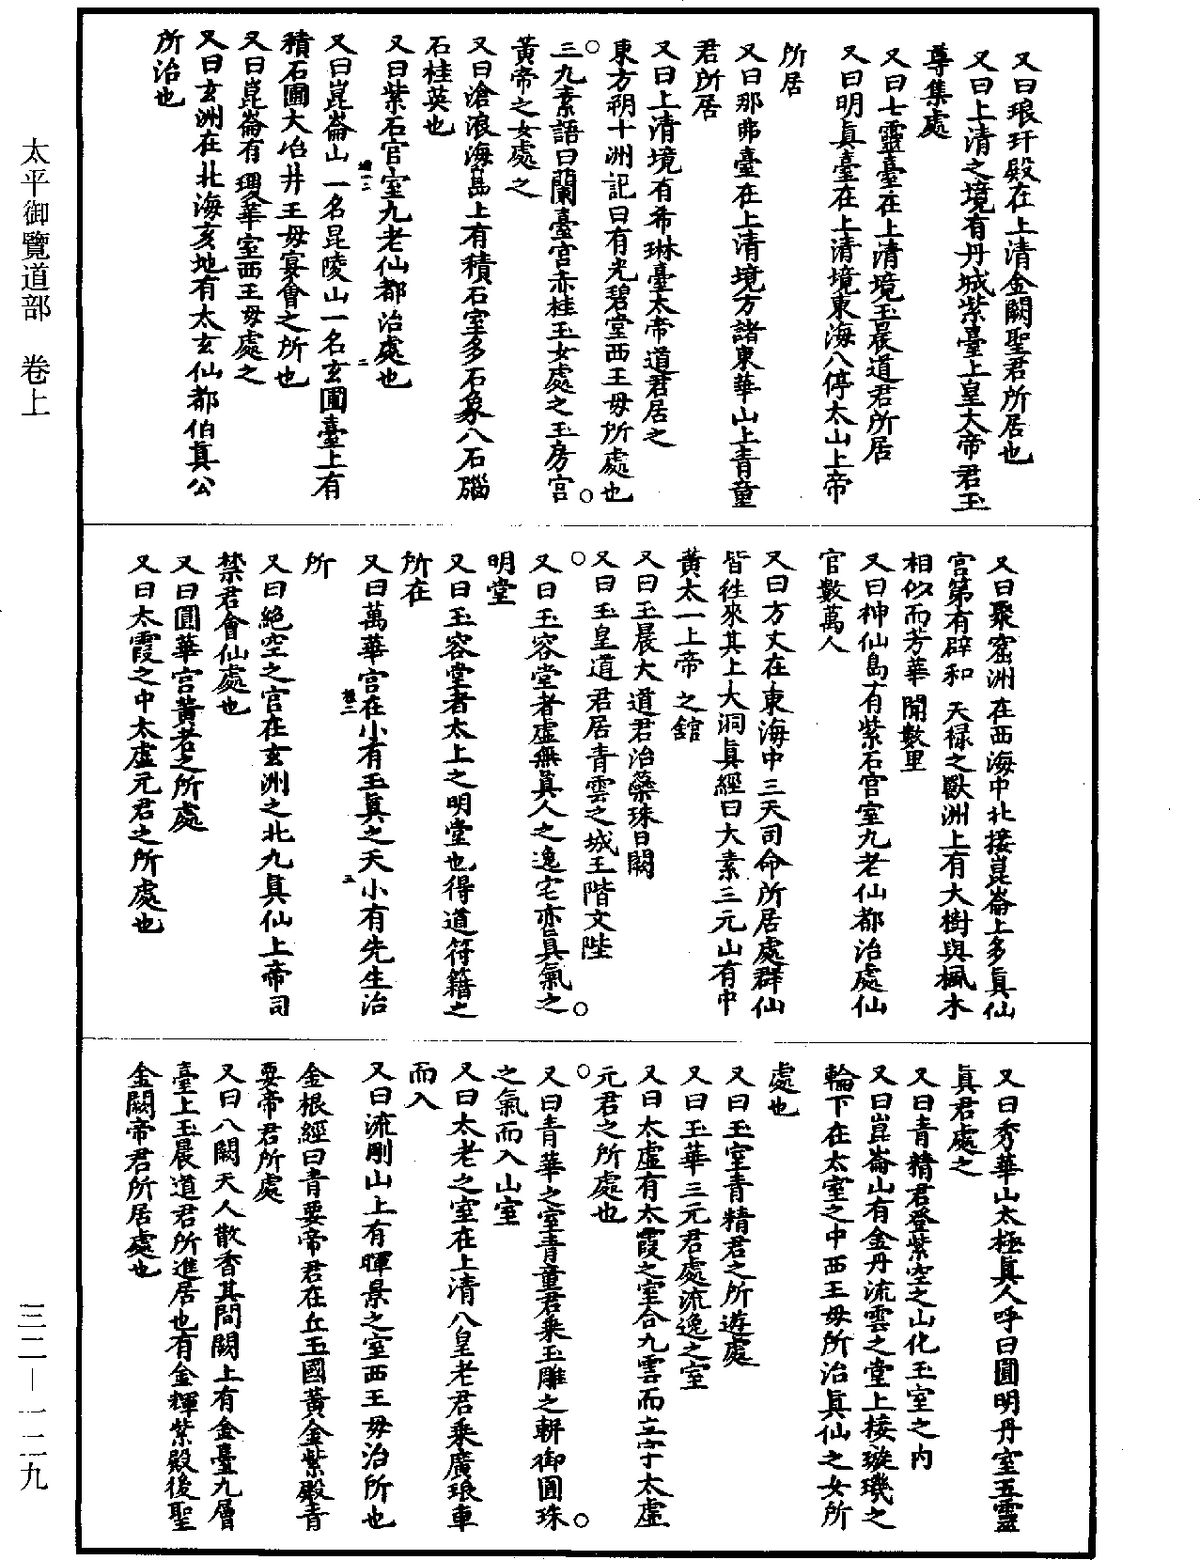 又曰琅玕殿在上清金闕聖君所居也
又曰上清之境有丹城紫臺上皇大帝君玉
尊集處
又曰七靈臺在上清境玉晨道君所居
又曰明真臺在上清境東海八停太山上帝
所居
又曰那弗臺在上清境方諸東華山上青童
君所居
又曰上清境有希琳臺太帝道君居之
東方朔十洲記曰有光碧堂西王母所處也
三九素語曰蘭臺宮赤桂玉女處之玉房宮
黃帝之女處之
又曰滄浪海島上有積石室多石象八石腦
石桂英也
又曰紫石官室九老仙都治處也
又曰崑崙山一名昆陵山一名玄圃臺上有
積石圃大冶井王母宴會之所也
又曰崑崙有瓊華室西王母處之
又曰玄洲在北海亥地有太玄仙都伯真公
所治也
又曰聚窟洲在西海中北接崑崙上多真仙
宮第有辟和天祿之獸洲上有大樹與楓木
相似而芳華聞數里
又曰神仙島有紫石官室九老仙都治處仙
官數萬人
又曰方丈在東海中三天司命所居處群仙
皆往來其上大洞真經曰大素三元山有中
黃太一上帝之館
又曰玉晨大道君治蘂珠日闕
又曰玉皇道君居青雲之城玉階文陛
又曰玉容堂者虛無真人之逸宅壺真氣之
明堂
又曰玉容堂者太上之明堂也得道符籍之
所在
又曰萬華宮在小有玉真之天小有先生治
所
又曰絕空之宮在玄洲之北九真仙上帝司
禁君會仙處也
又曰圓華宮黃老之所處
又曰太霞之中太虛元君之所處也
又曰秀華山太極真人呼曰圓明丹室五靈
真君處之
又曰青精君登紫空之山化玉室之内
又曰崑崙山有金丹流雲之堂上接璇璣之
輪下在太室之中西王母所治真仙之女所
處也
又曰玉室青精君之所遊處
又曰玉華三元君處流逸之室
又曰太虛有太霞之室合九雲而立宇太虛
元君之所處也
又曰青華之室青童君乘玉雕之軿御圓珠
之氣而入山室
又曰太老之室在上清八皇老君乘廣琅車
而入
又曰流剛山上有暉景之室西王母治所也
金根經曰青要帝君在丘玉國黃金紫殿青
要帝君所處
又曰八闕天人散香其間闕上有金臺九層
臺上玉晨道君所進居也有金輝紫殿後聖
金闕帝君所居處也
太平御覽道部　卷上
三二—一二九